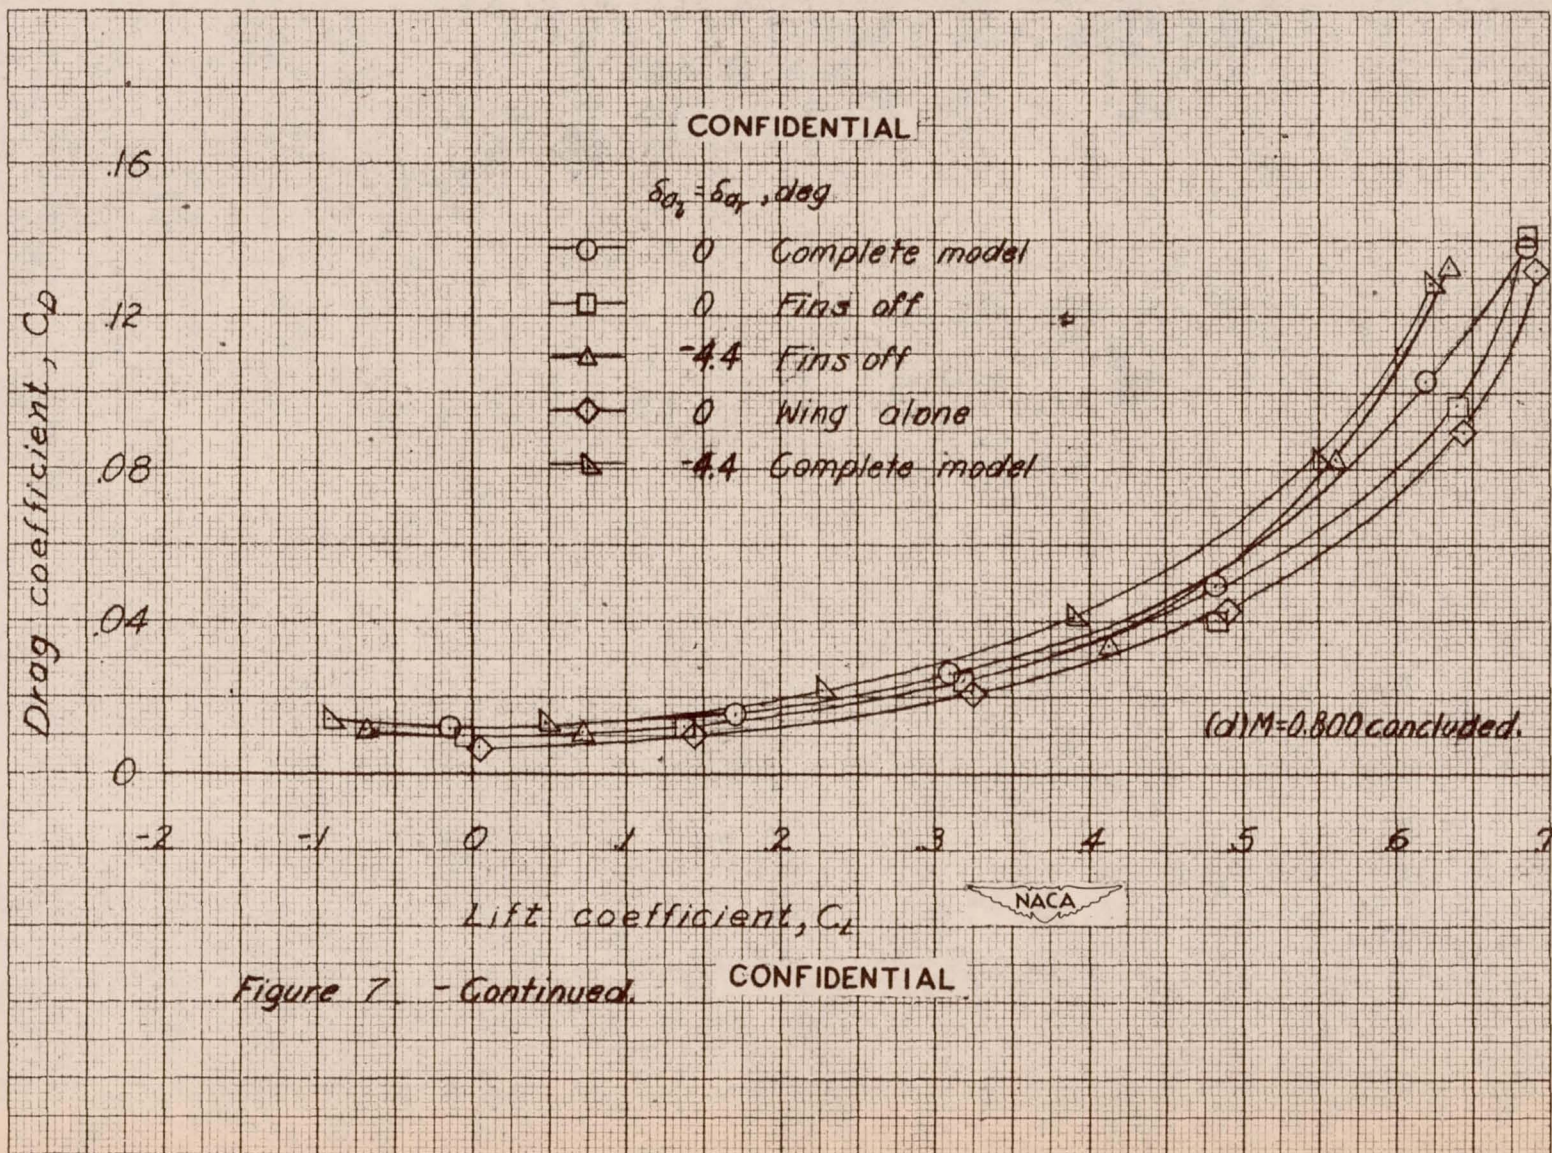 CONFIDENTIAL
.16
δaₗ = δaᵣ, deg
0 Complete model
0 Fins off
-4.4 Fins off
0 Wing alone
-4.4 Complete model
.12
.08
.04
0
Drag coefficient, C_D
(d) M=0.800 concluded.
-.2 -.1 0 .1 .2 .3 .4 .5 .6 .7
NACA
Lift coefficient, C_L
CONFIDENTIAL
Figure 7 - Continued.